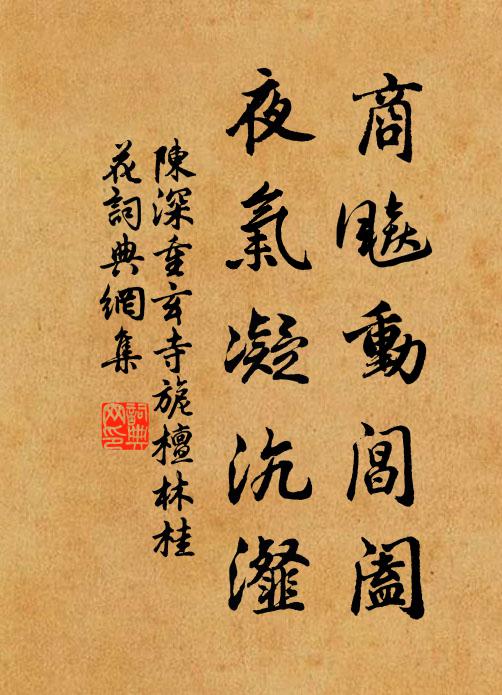 商飈動閶闔
夜氣凝沆瀣
陳深重玄寺旃檀林桂
花詞典網集
詞典
网印